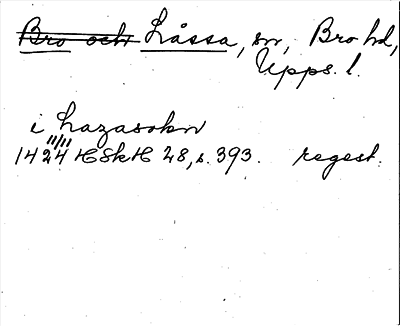 Bro och Låssa, sn, Bro hd,
Upps. l.
i Lazasokn
11/11
1424 HSkH 28, s. 393. regest.